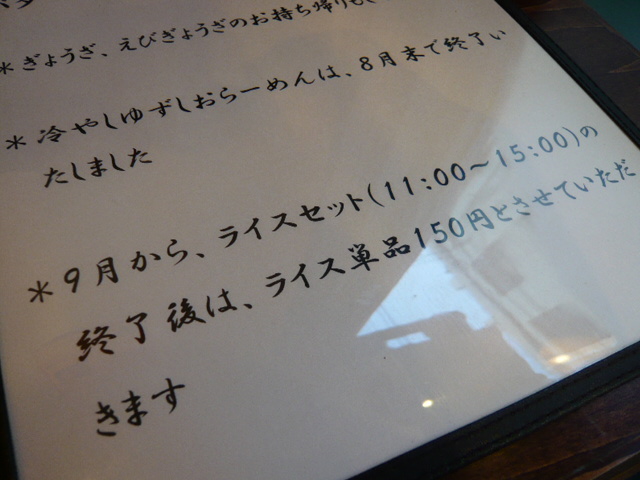 ＊ぎょうざ、えびぎょうざのお持ち帰りも
＊冷やしゆずしおらーめんは、8月末で終了い
たしました
＊9月から、ライスセット(11:00〜15:00)の
終了後は、ライス単品150円とさせていただ
きます